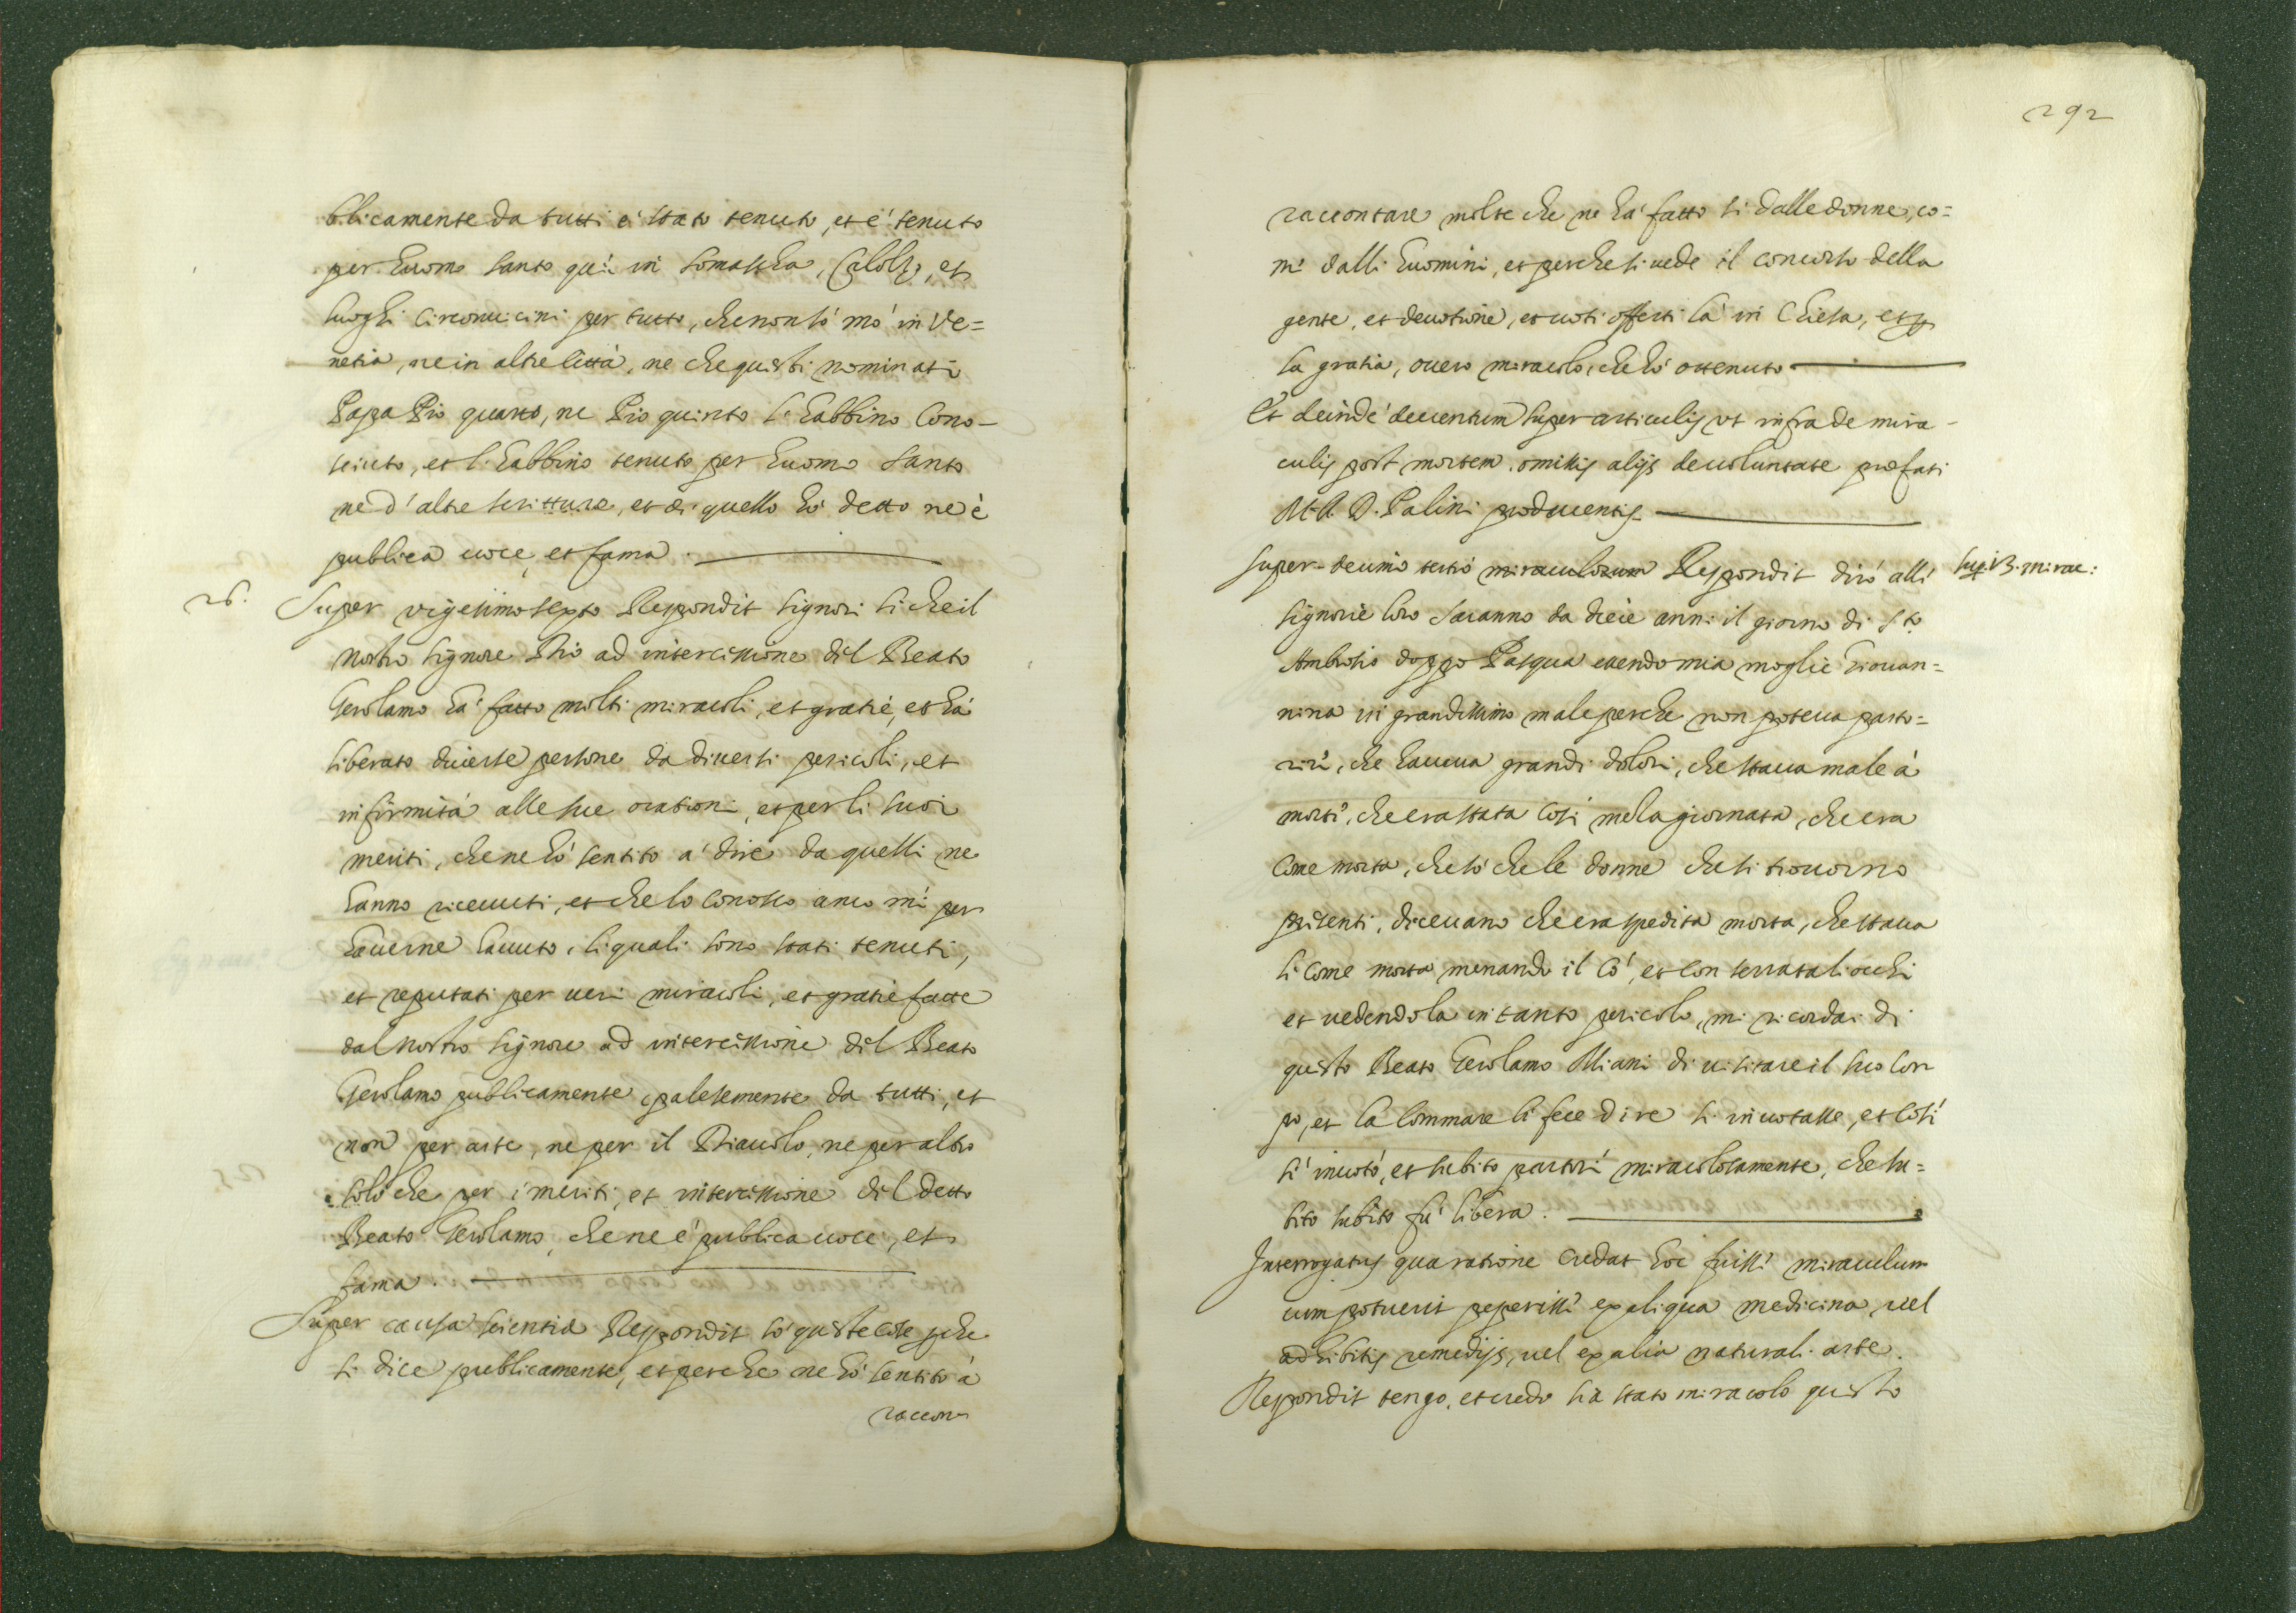 blicamente da tutti è stato tenuto, et è tenuto
per huomo santo qui in Somascha, Calolzo, et
luoghi circonuicini per tutto, che non sò mò in Ve=
netia, ne in altre Città, ne che questi nominati
Papa Pio quarto, ne Pio quinto l'habbino cono-
sciuto, et l'habbino tenuto per huomo santo
ne d'altre scritture, et di quello hò detto ne è
publica uoce, et fama.
26. Super vigesimo sexto Respondit signori si che il
nostro signore Dio ad intercissione dil Beato
Gerolamo hà fatto molti miracoli, et gratie, et hà
liberato diuerse persone da diuersi pericoli, et
infirmità alle sue orationi, et per li suoi
meriti, che ne hò sentito à dire da quelli ne
hanno riceuuti, et che lo conosco anco mi per
hauerne hauuto, li quali sono stati tenuti,
et reputati per ueri miracoli, et gratie fatte
dal nostro signore ad intercissione dil Beato
Gerolamo publicamente, palesemente da tutti, et
non per arte, ne per il Diauolo, ne per altro
solo che per i meriti, et intercissione dil detto
Beato Gerolamo, che ne è publica uoce, et
fama.
Super causa scientiæ Respondit sò queste cose perche
si dice publicamente, et perche ne hò sentito à
raccon
292
raccontare molte che ne hà fatto si dalle donne, co=
me dalli huomini, et perche si uede il concorso della
gente, et deuotione, et uoti offerti là in Chiesa, et per
la gratia, ouero miracolo, che hò ottenuto
Et deinde deuentum super articulis ut infra de mira-
culis post mortem, omissis alijs de uoluntate præfati
M. R. D. Palini producentis
Super decimo tertio miraculorum Respondit dirò alli sup. 13. mirac:
signorie loro saranno da diece anni il giorno di S.to
Ambrosio doppo Pasqua essendo mia moglie Giouan=
nina in grandissimo male perche non poteua parto=
rire, che haueua grandi dolori, che staua male à
morte, che era stata così mela giornata, che era
come morta, che sò che le donne che si trouorno
presenti, diceuano che era spedita morta, che staua
li come morta menando il cò, et con serrata li occhi
et uedendola in tanto pericolo, mi ricordai di
questo Beato Gerolamo Miani di uisitare il suo cor
po, et la commare li fece dire si inuotasse, et così
si inuotò, et subito partorì miracolosamente, che su=
bito subito fù libera.
Interrogatus qua ratione credat hoc fuisse miraculum
cum potuerit peperisse ex aliqua medicina, uel
adhibitis remedijs, uel ex alia naturali arte.
Respondit tengo, et credo sia stato miracolo questo